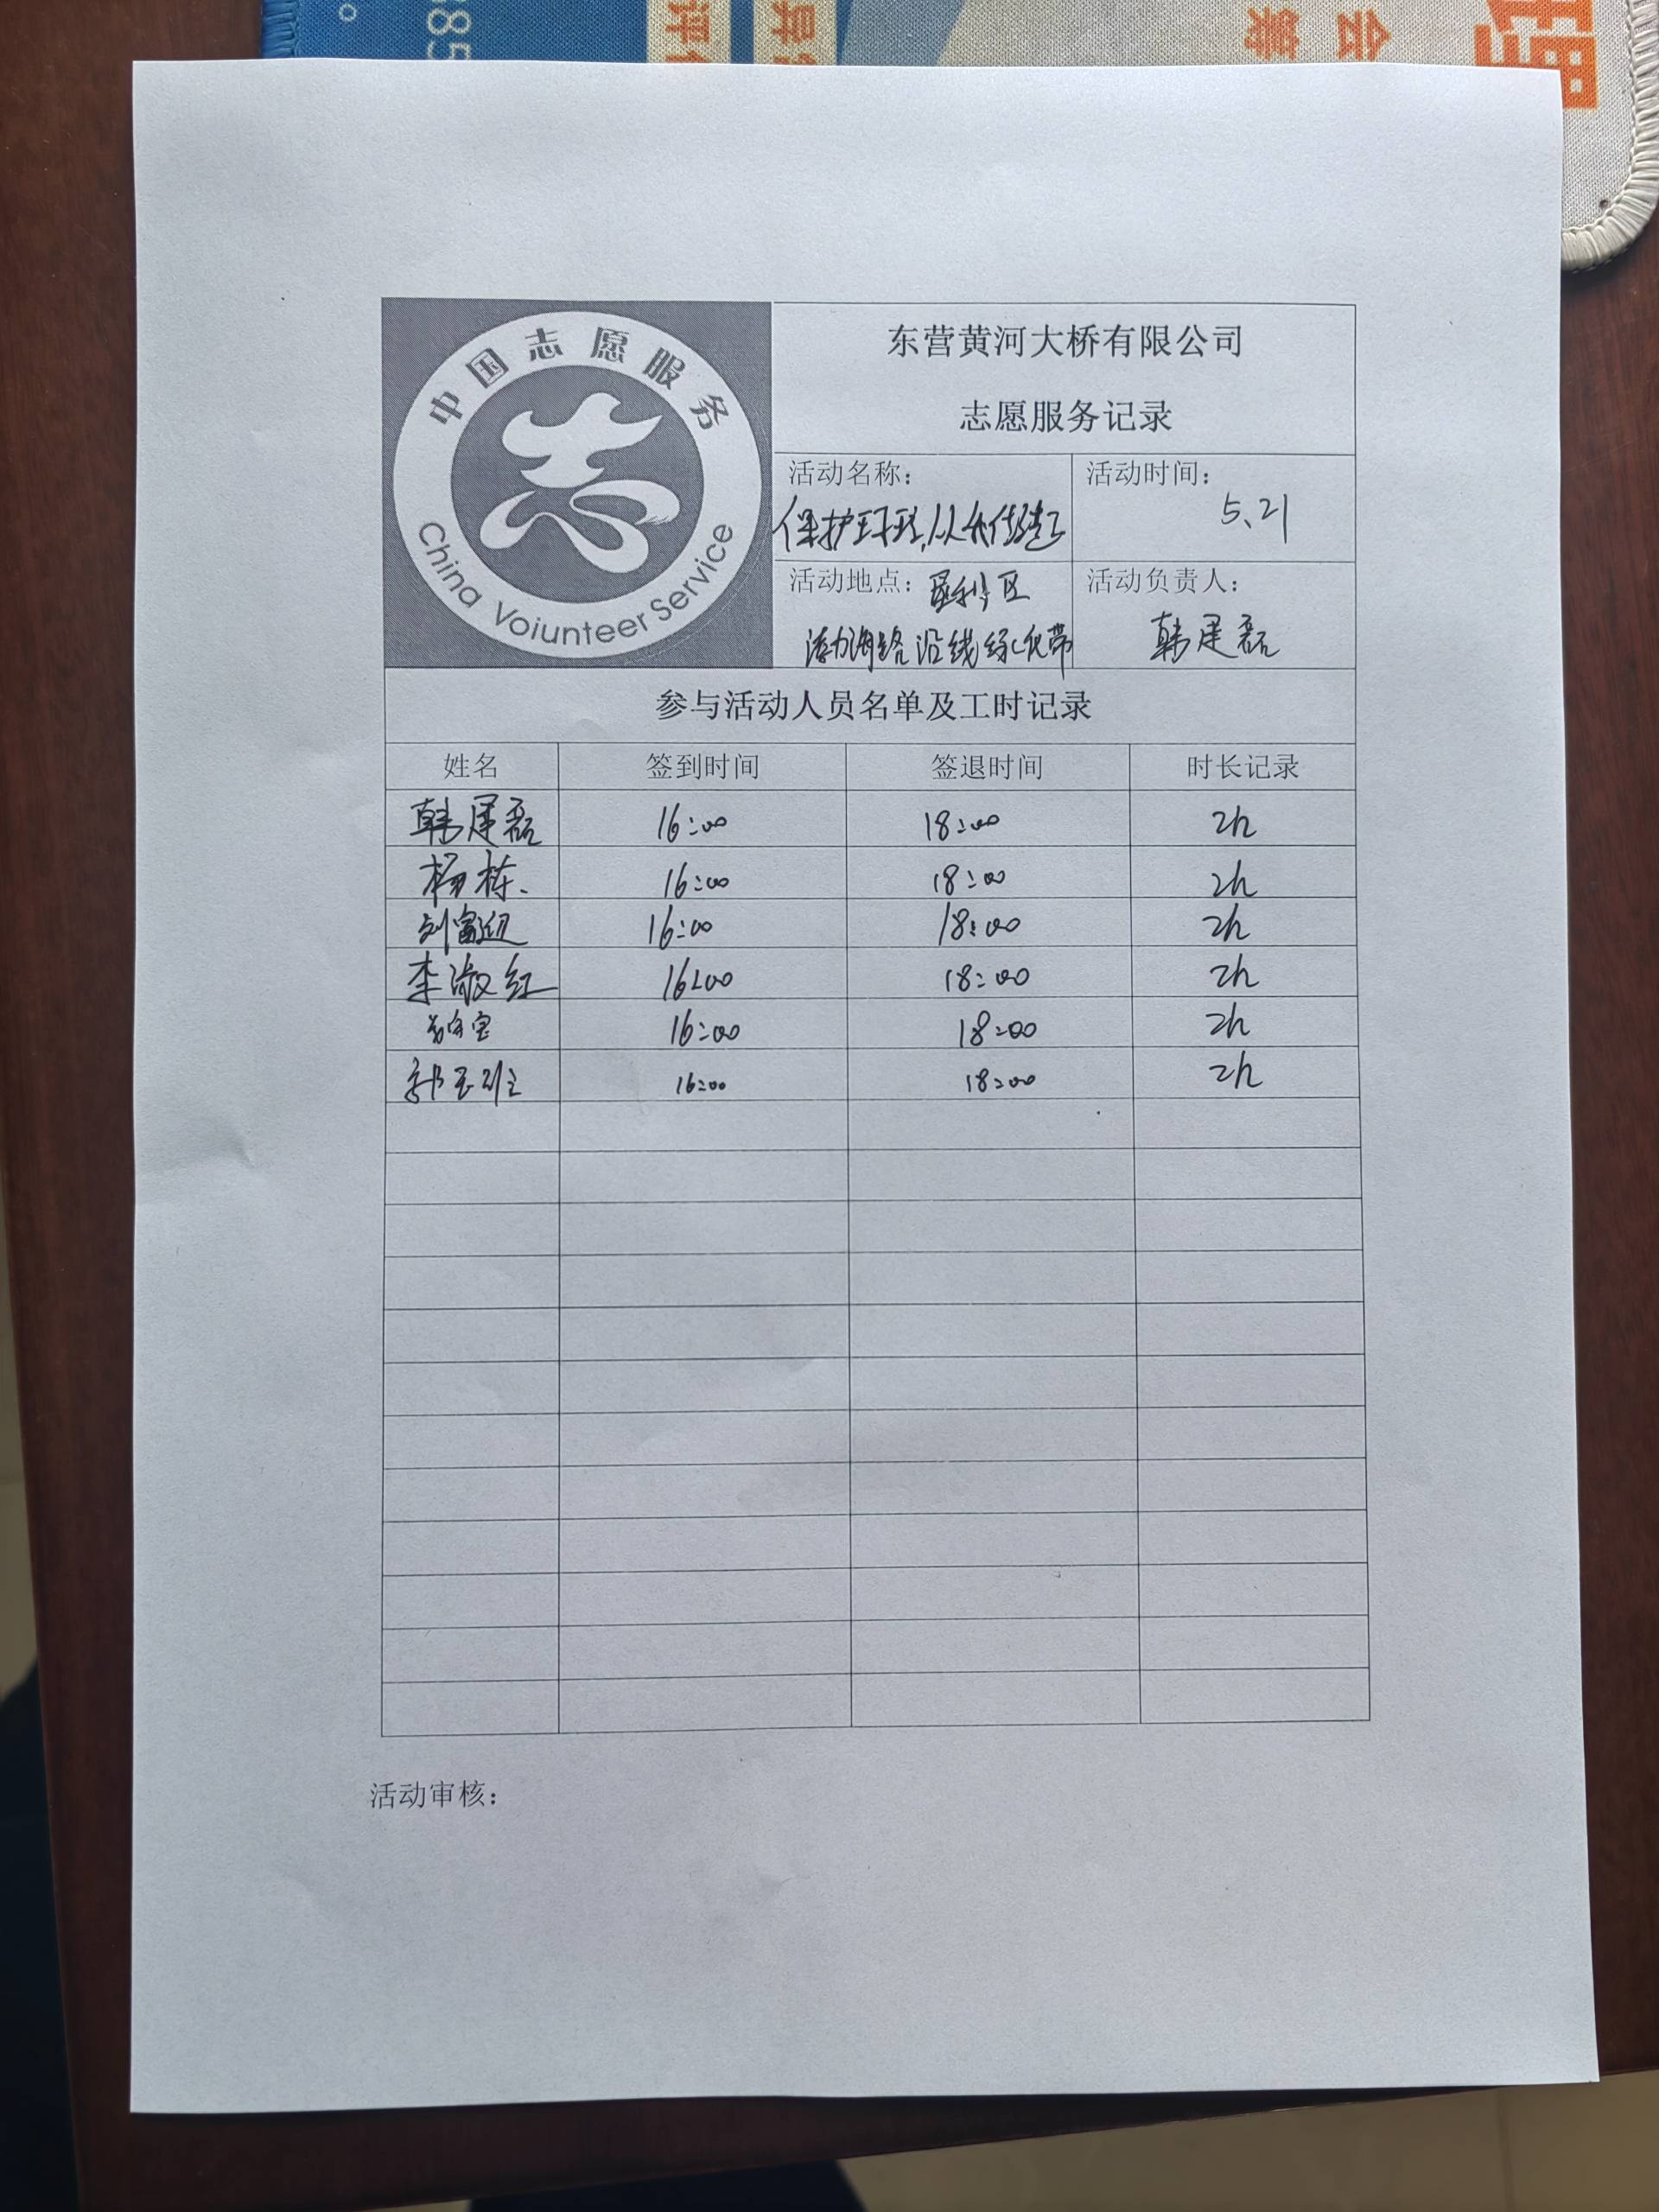 85。
评
异
会筹
理
中国志愿服务
China Voiunteer Service
东营黄河大桥有限公司
志愿服务记录
活动名称：
保护环境,从你做起
活动时间：
5、21
活动地点：垦利区
渤海路沿线绿化带
活动负责人：
韩建磊
参与活动人员名单及工时记录
姓名 签到时间 签退时间 时长记录
韩建磊 16:00 18:00 2h
杨栋、 16:00 18:00 2h
刘富 16:00 18:00 2h
李淑红 16:00 18:00 2h
16:00 18:00 2h
郭玉 16:00 18:00 2h
活动审核：